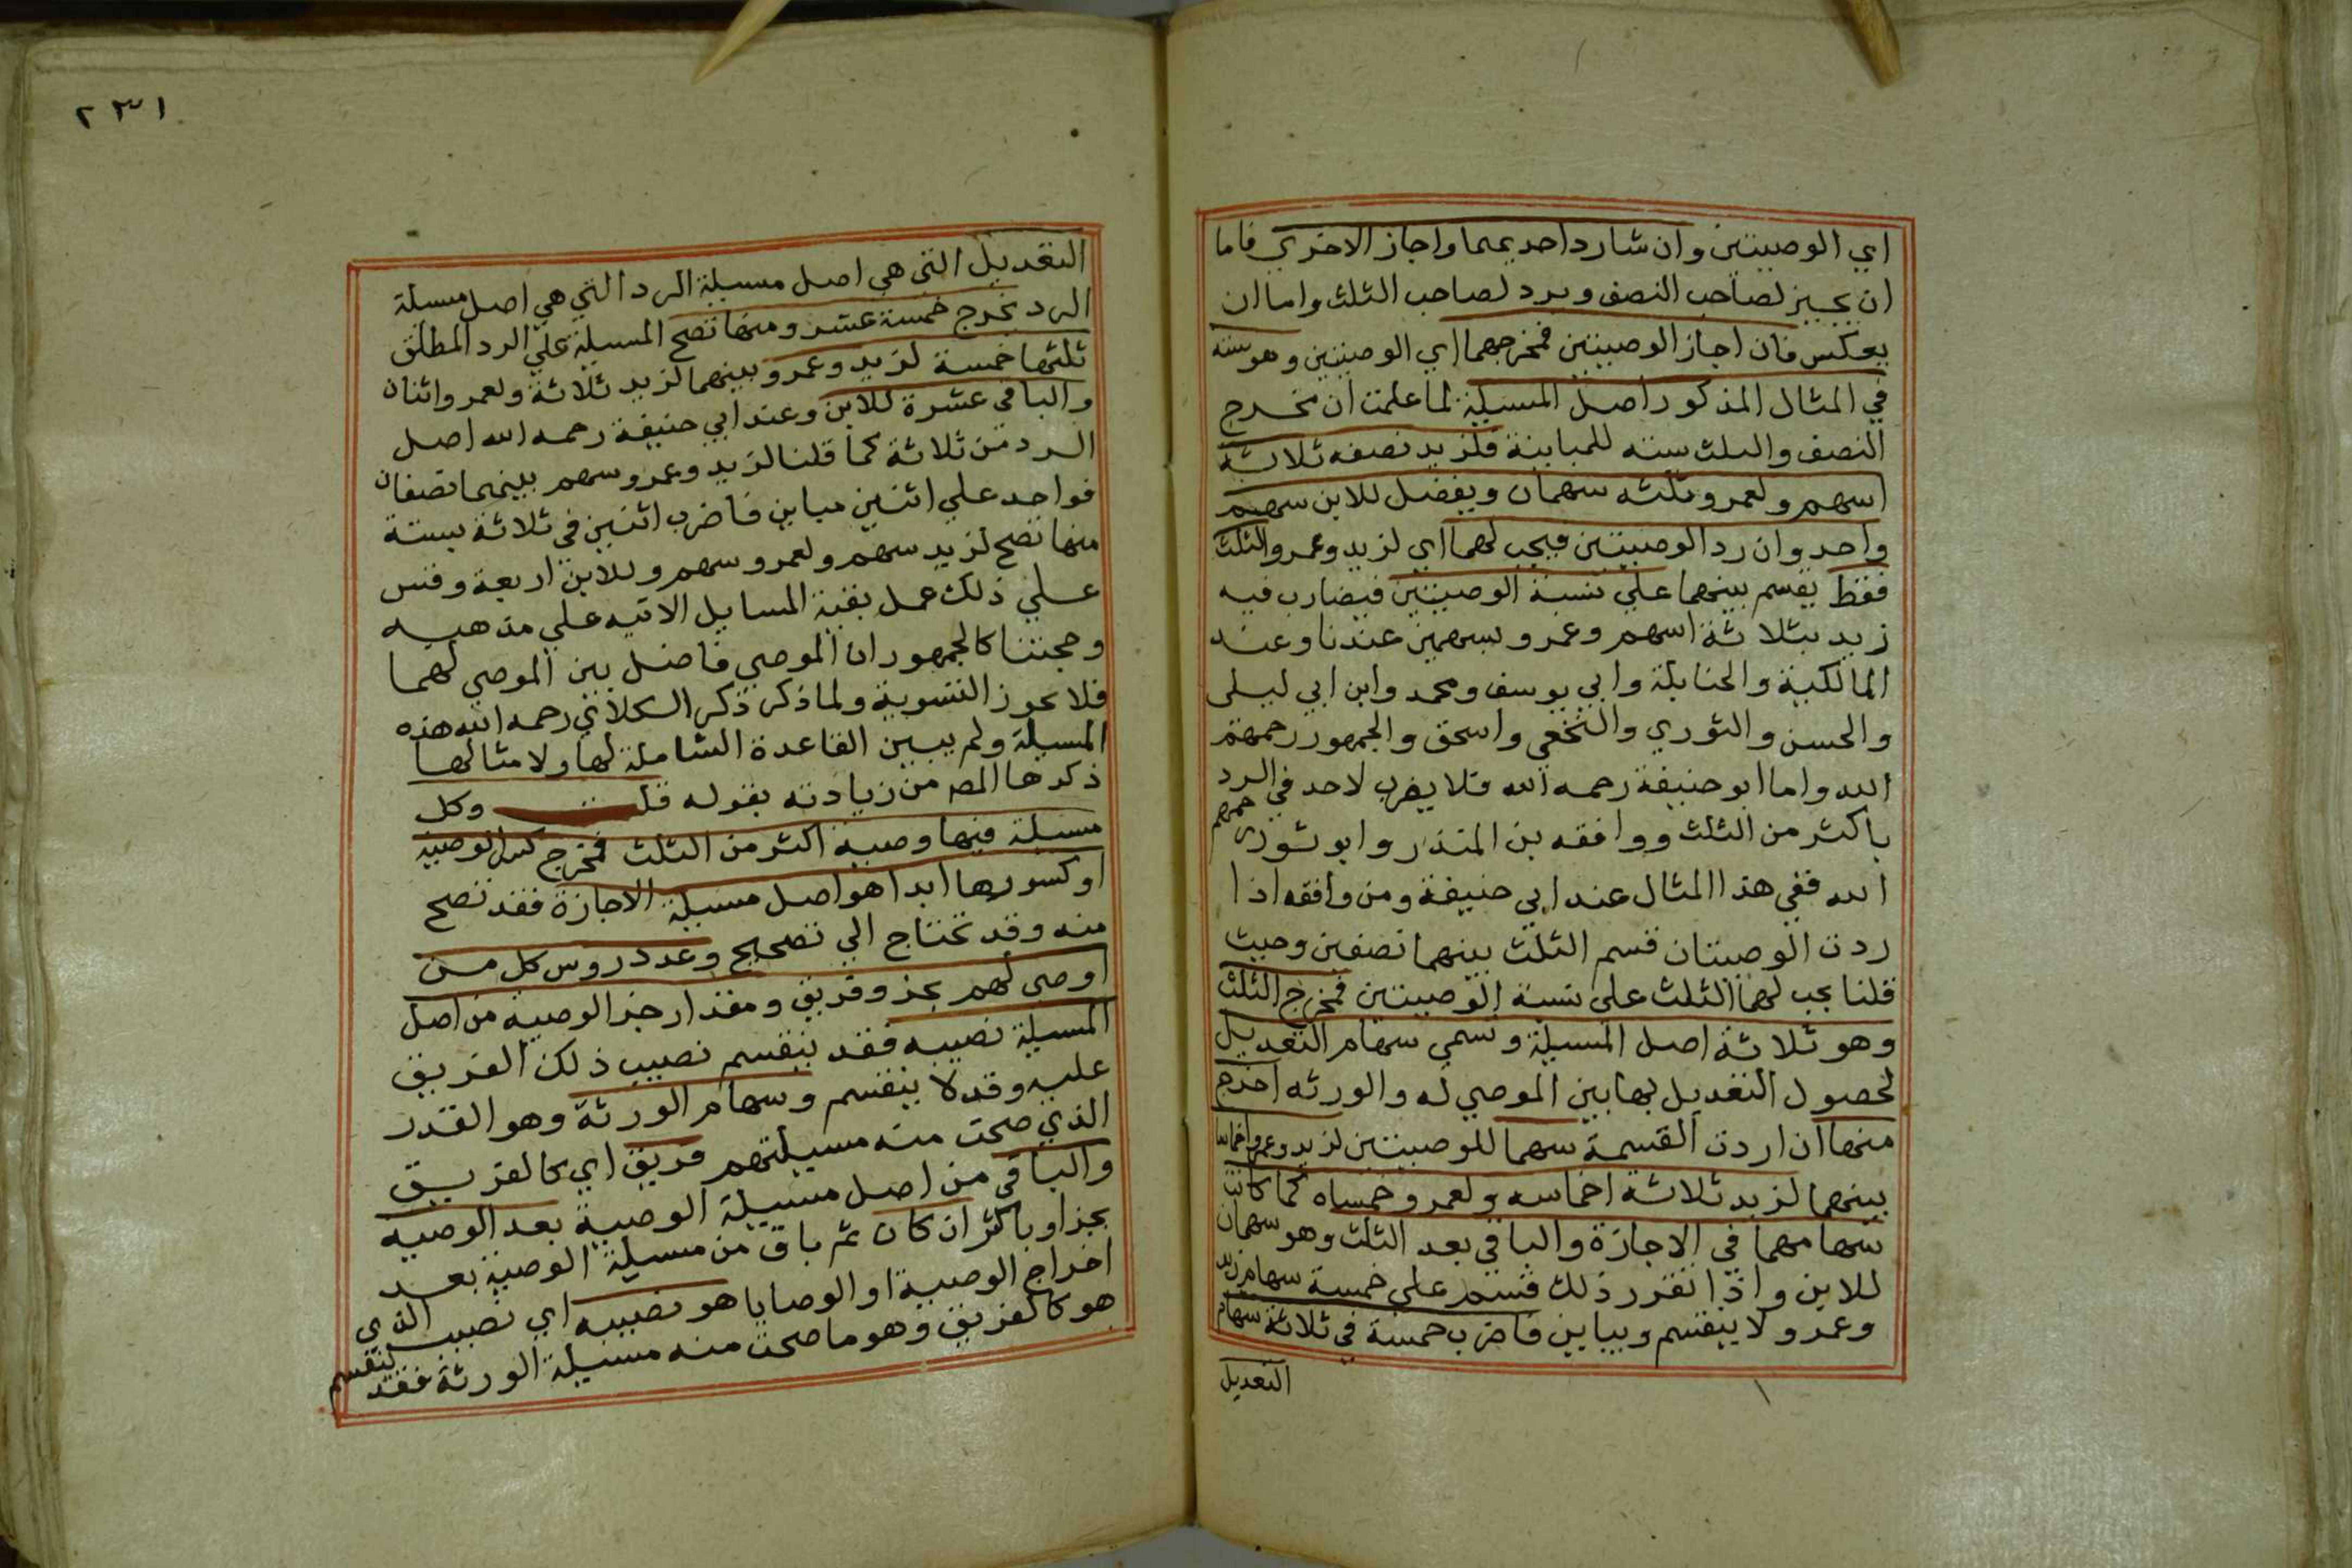 اي الوصيتين وان شا رد احديهما واجاز الاخري فاما
ان يجيز لصاحب النصف ويرد لصاحب الثلث واما ان
يعكس فان اجاز الوصيتين فمخرجهما اي الوصيتين وهو ستة
في المثال المذكور اصل المسيلة لما علمت ان مخرج
النصف والثلث ستة للمباينة فلزيد نصفه ثلاثة
اسهم ولعمرو ثلثه سهمان ويفضل للابن سهم
واحد وان رد الوصيتين فيجب لهما اي لزيد وعمرو الثلث
فقط يقسم بينهما علي نسبة الوصيتين فيضارب فيه
زيد بثلاثة اسهم وعمرو بسهمين عندنا وعند
المالكية والحنابلة وابي يوسف ومحمد وابن ابي ليلى
والحسن والثوري والنخعي واسحق والجمهور رحمهم
الله واما ابو حنيفة رحمه الله فلا يضرب لاحد في الرد
باكثر من الثلث ووافقه بن المنذر وابو ثور رحمهم
الله ففي هذا المثال عند ابي حنيفة ومن وافقه اذا
ردت الوصيتان قسم الثلث بينهما نصفين وحيث
قلنا يجب لهما الثلث على نسبة الوصيتين فمخرج الثلث
وهو ثلاثة اصل المسيلة وتسمي سهام التعديل
لحصول التعديل بها بين الموصي له والورثه اخرج
منها ان اردت القسمة سهما للموصيتين لزيد وعمرو اخماسا
بينهما لزيد ثلاثة اخماسه ولعمرو خمساه كما كانت
سهامهما في الاجازة والباقي بعد الثلث وهو سهمان
للابن واذا تقرر ذلك فسهم على خمسة سهام زيد
وعمرو لا ينقسم ويباين فاضرب خمسة في ثلاثة سهام
التعديل
٢٣١
التعديل التي هي اصل مسيلة الرد التي هي اصل مسلة
الرد تخرج خمسة عشر ومنها تصح المسيلة علي الرد المطلق
ثلثها خمسة لزيد وعمرو بينهما لزيد ثلاثة ولعمرو اثنان
والباقي عشرة للابن وعند ابي حنيفة رحمه الله اصل
الرد من ثلاثة كما قلنا لزيد وعمرو سهم بينهما نصفان
فواحد علي اثنين مباين فاضرب اثنين في ثلاثة بستة
منها تصح لزيد سهم ولعمرو سهم وللابن اربعة وقس
علي ذلك عمل بقية المسايل الاتيه علي مذهبه
وحجتنا كالجمهور ان الموصي فاضل بين الموصي لهما
فلا يجوز التسوية ولما ذكر ذكر الكلائي رحمه الله هذه
المسيلة ولم يبين القاعدة الشاملة لها ولا مثالها
ذكرها المص من زيادته بقوله قلت وكل
مسيلة فيها وصية اكثر من الثلث فمخرج كسر الوصية
او كسورها ابدا هو اصل مسيلة الاجازة فقد تصح
منه وقد تحتاج الي تصحيح وعدد روس كل من
اوصى لهم بجزو فريق ومقدار جز الوصية من اصل
المسيلة نصيبه فقد ينقسم نصيب ذلك الفريق
عليه وقد لا ينقسم وسهام الورثة وهو القدر
الذي صحت منه مسيلتهم فريق اي كالفريق
والباقي من اصل مسيلة الوصية بعد الوصيه
بجز او باكثر ان كان ثم باق من مسيلة الوصية بعد
اخراج الوصية او الوصايا هو نصيبه اي نصيب الذي
هو كالفريق وهو ما صحت منه مسيلة الورثة فقد ينقسم